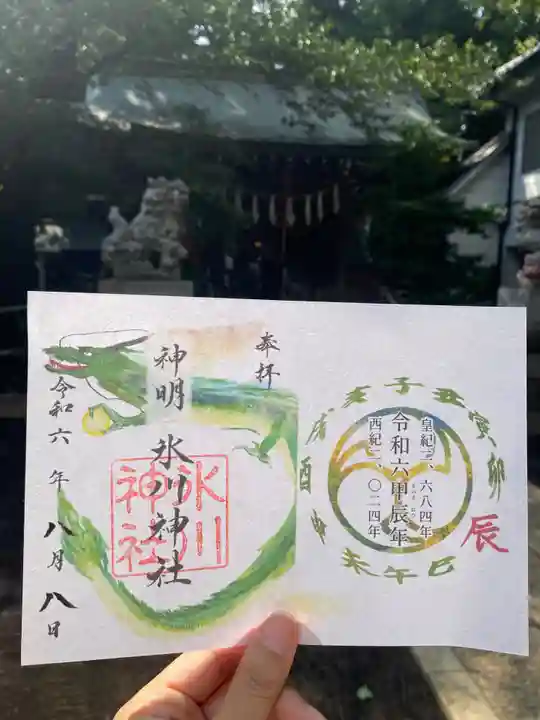 奉拝
神明 氷川神社
氷川神社
令和六年八月八日
皇紀二、六八四年
令和六甲辰年
西紀二、〇二四年
子丑寅卯辰巳午未申酉戌亥